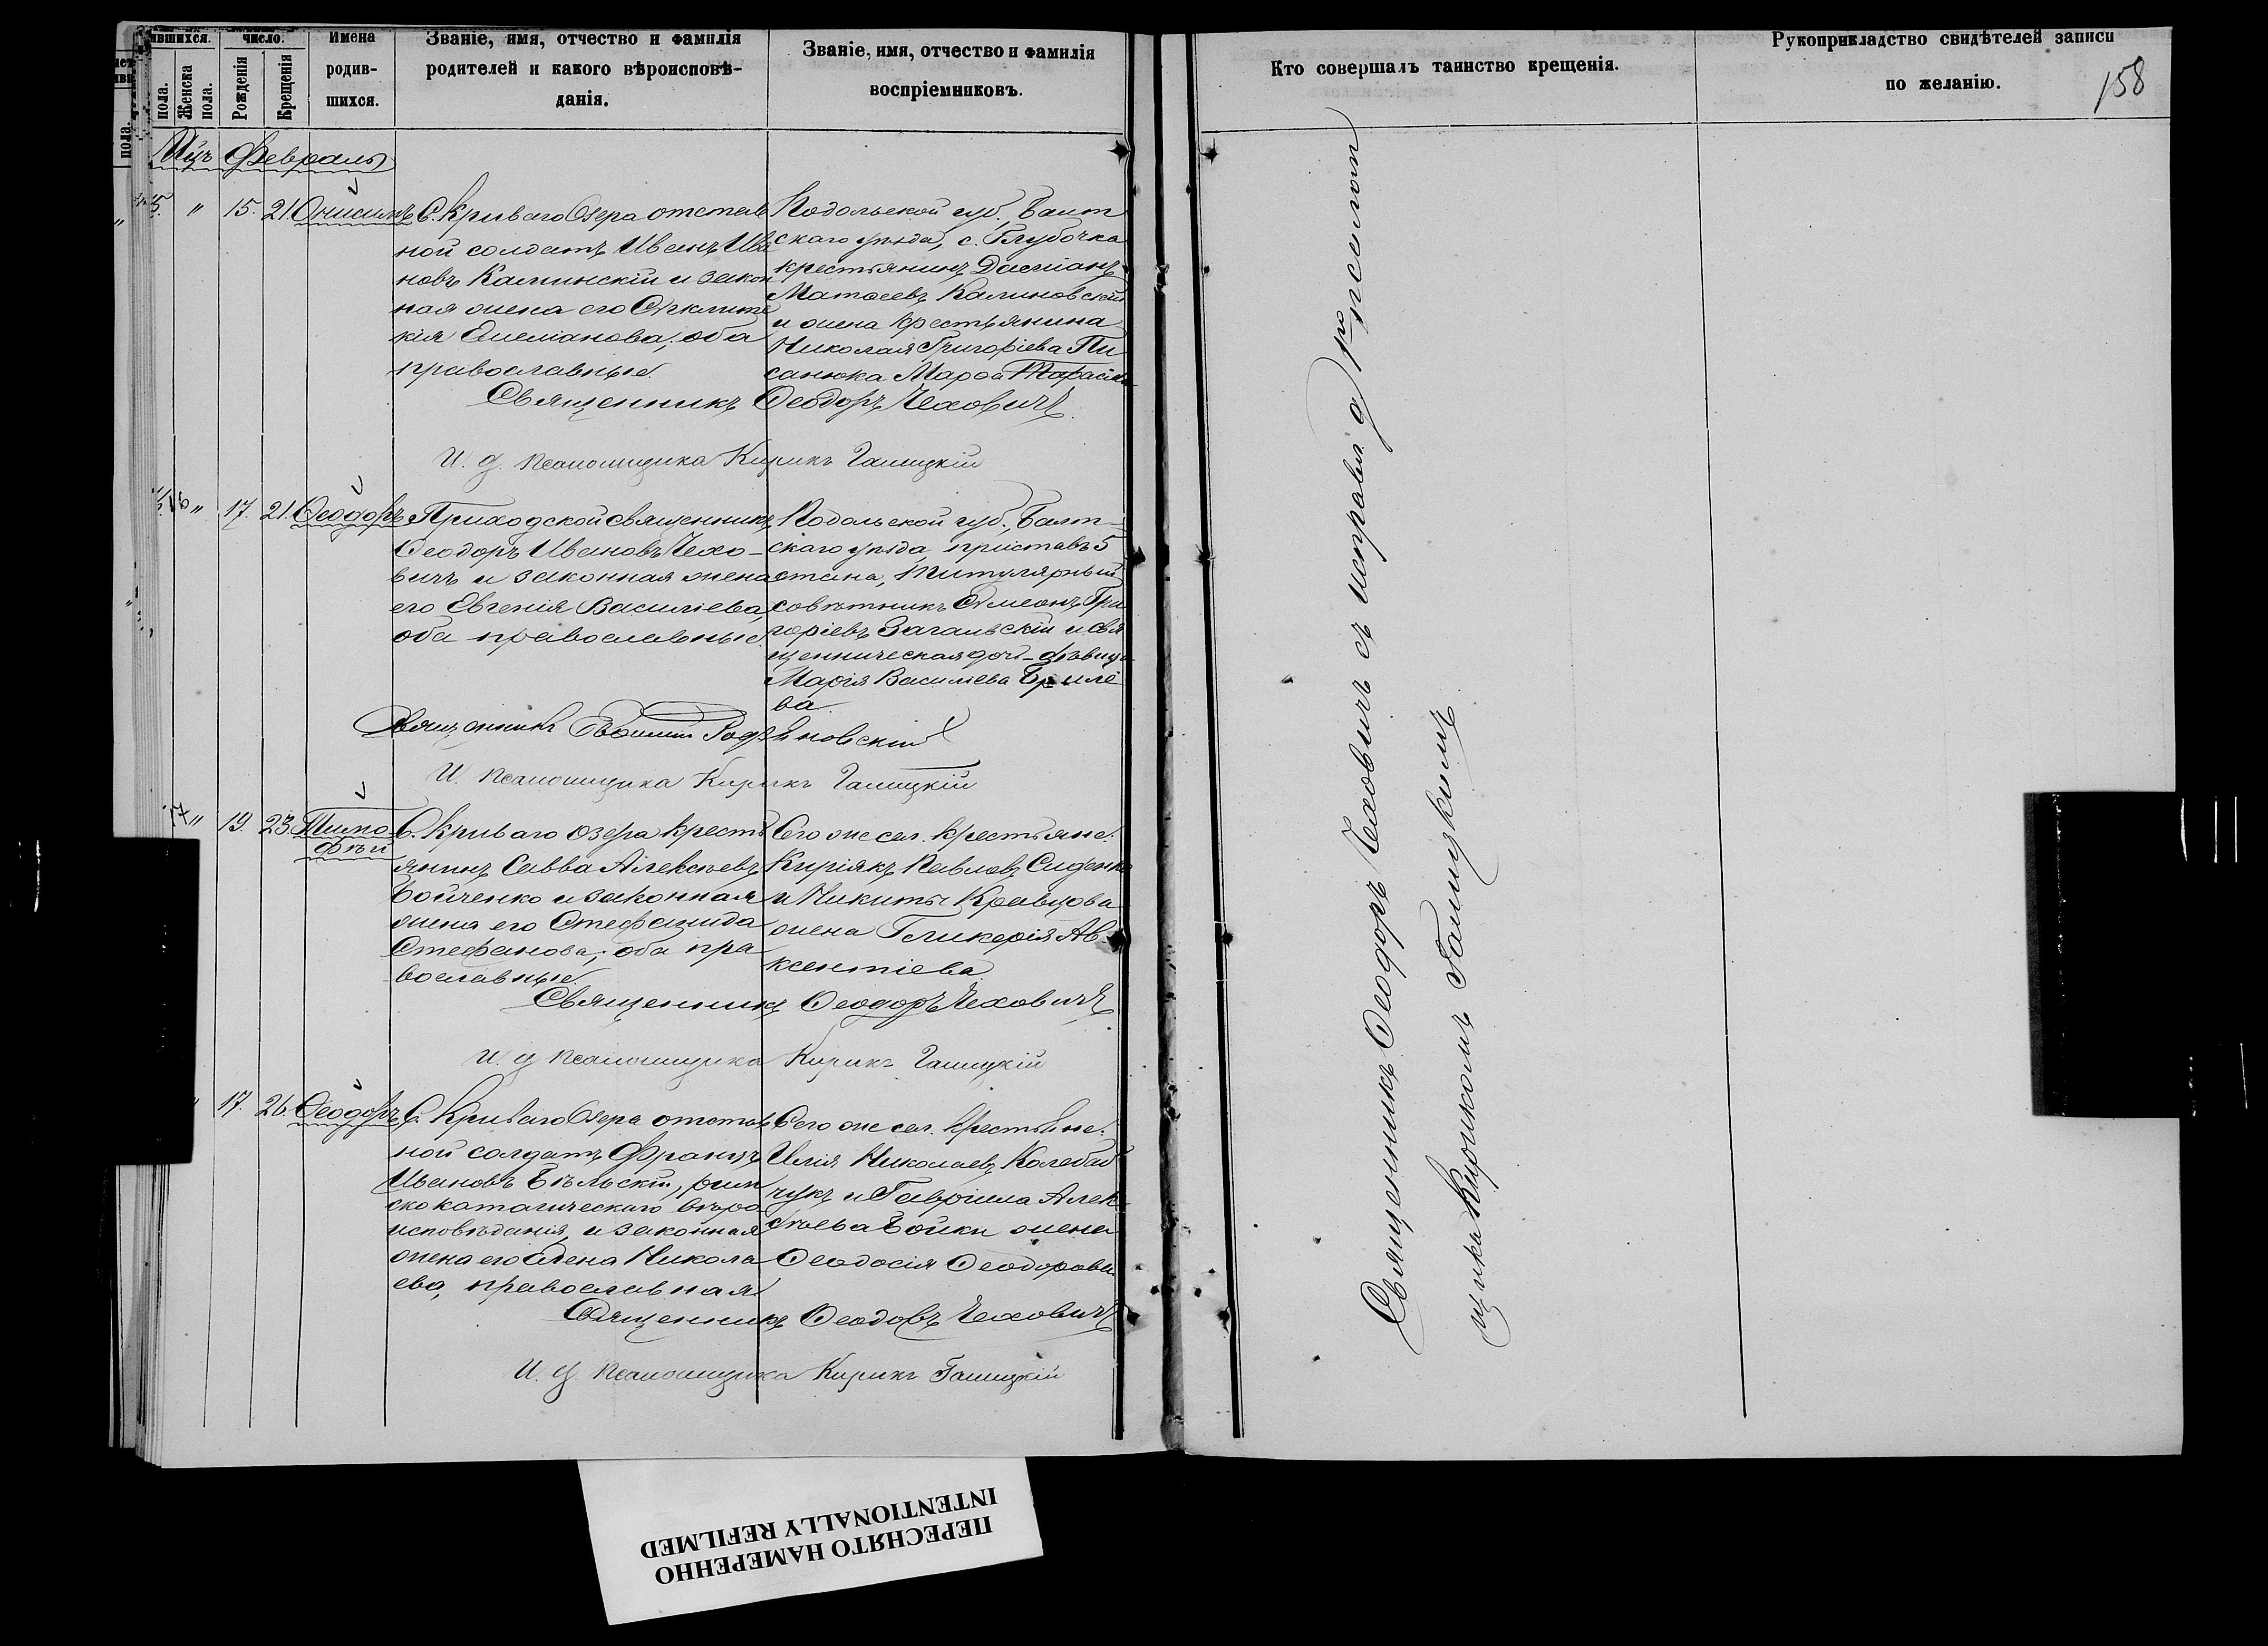 ившихся.
число.
пола.
Женска пола.
Рожденія
Крещенія
Имена
родив-
шихся.
Званіе, имя, отчество и фамилія
родителей и какого вѣроисповѣ-
данія.
Званіе, имя, отчество и фамилія
воспріемниковъ.
Кто совершалъ таинство крещенія.
Рукоприкладство свидѣтелей записи
по желанію.
158
Февраль
15. 21. Онисимъ
С. Криваго Озера отстав
ной солдатъ Иванъ Ива
новъ Калинскій и закон
ная жена его
Емеліанова; оба
православные.
Подольской губ., Балт
скаго уѣзда, с. Глубочка
крестьянинъ Даміанъ
Матѳеевъ Калиновскій
и жена крестьянина
Николая Григоріева Пи
санюка Марѳа
Священникъ Ѳеодоръ Чеховичъ
И. д. псаломщика Кирикъ Галицкій
16 " 17. 21. Ѳеодоръ
Приходской священникъ
Ѳеодоръ Ивановъ Чехо-
вичъ и законная жена
его Евгенія Василіева,
оба православные.
Подольской губ., Балт-
скаго уѣзда, приставъ 5
стана, титулярный
совѣтникъ Симеонъ Гри
горіевъ Загальскій и свя
щенническая дочь-дѣвица
Марія Василіева
ва
Священникъ Евѳимій
И. псаломщика Кирикъ Галицкій
17 " 19. 23. Тимо
ѳей
С. Криваго Озера кресть
янинъ Савва Алексѣевъ
Бойченко и законная
жена его Стефанида
Стефанова; оба пра
вославные.
Сего же сел. крестьяне:
Киріякъ Павловъ Сиденко
и Никиты Кравцова
жена Гликерія Ав-
ксентіева
Священникъ Ѳеодоръ Чеховичъ
И. д. псаломщика Кирикъ Галицкій
" 17. 26. Ѳеодоръ
С. Криваго Озера отстав
ной солдатъ Францъ
Ивановъ Бѣльскій, рим
скокатолическаго вѣро
исповѣданія, и законная
жена его Елена Никола
ева, православная
Сего же сел. крестьяне:
Илія Николаевъ Колебай
чукъ и Гавріила Алек-
сѣева Бойки жена
Ѳеодосія Ѳеодорова
Священникъ Ѳеодоръ Чеховичъ
И. д. псаломщика Кирикъ Галицкій
Священникъ Ѳеодоръ Чеховичъ съ исправл. д. псалом
щика Кирикомъ Галицкимъ
ПЕРЕСНЯТО НАМЕРЕННО
INTENTIONALLY REFILMED